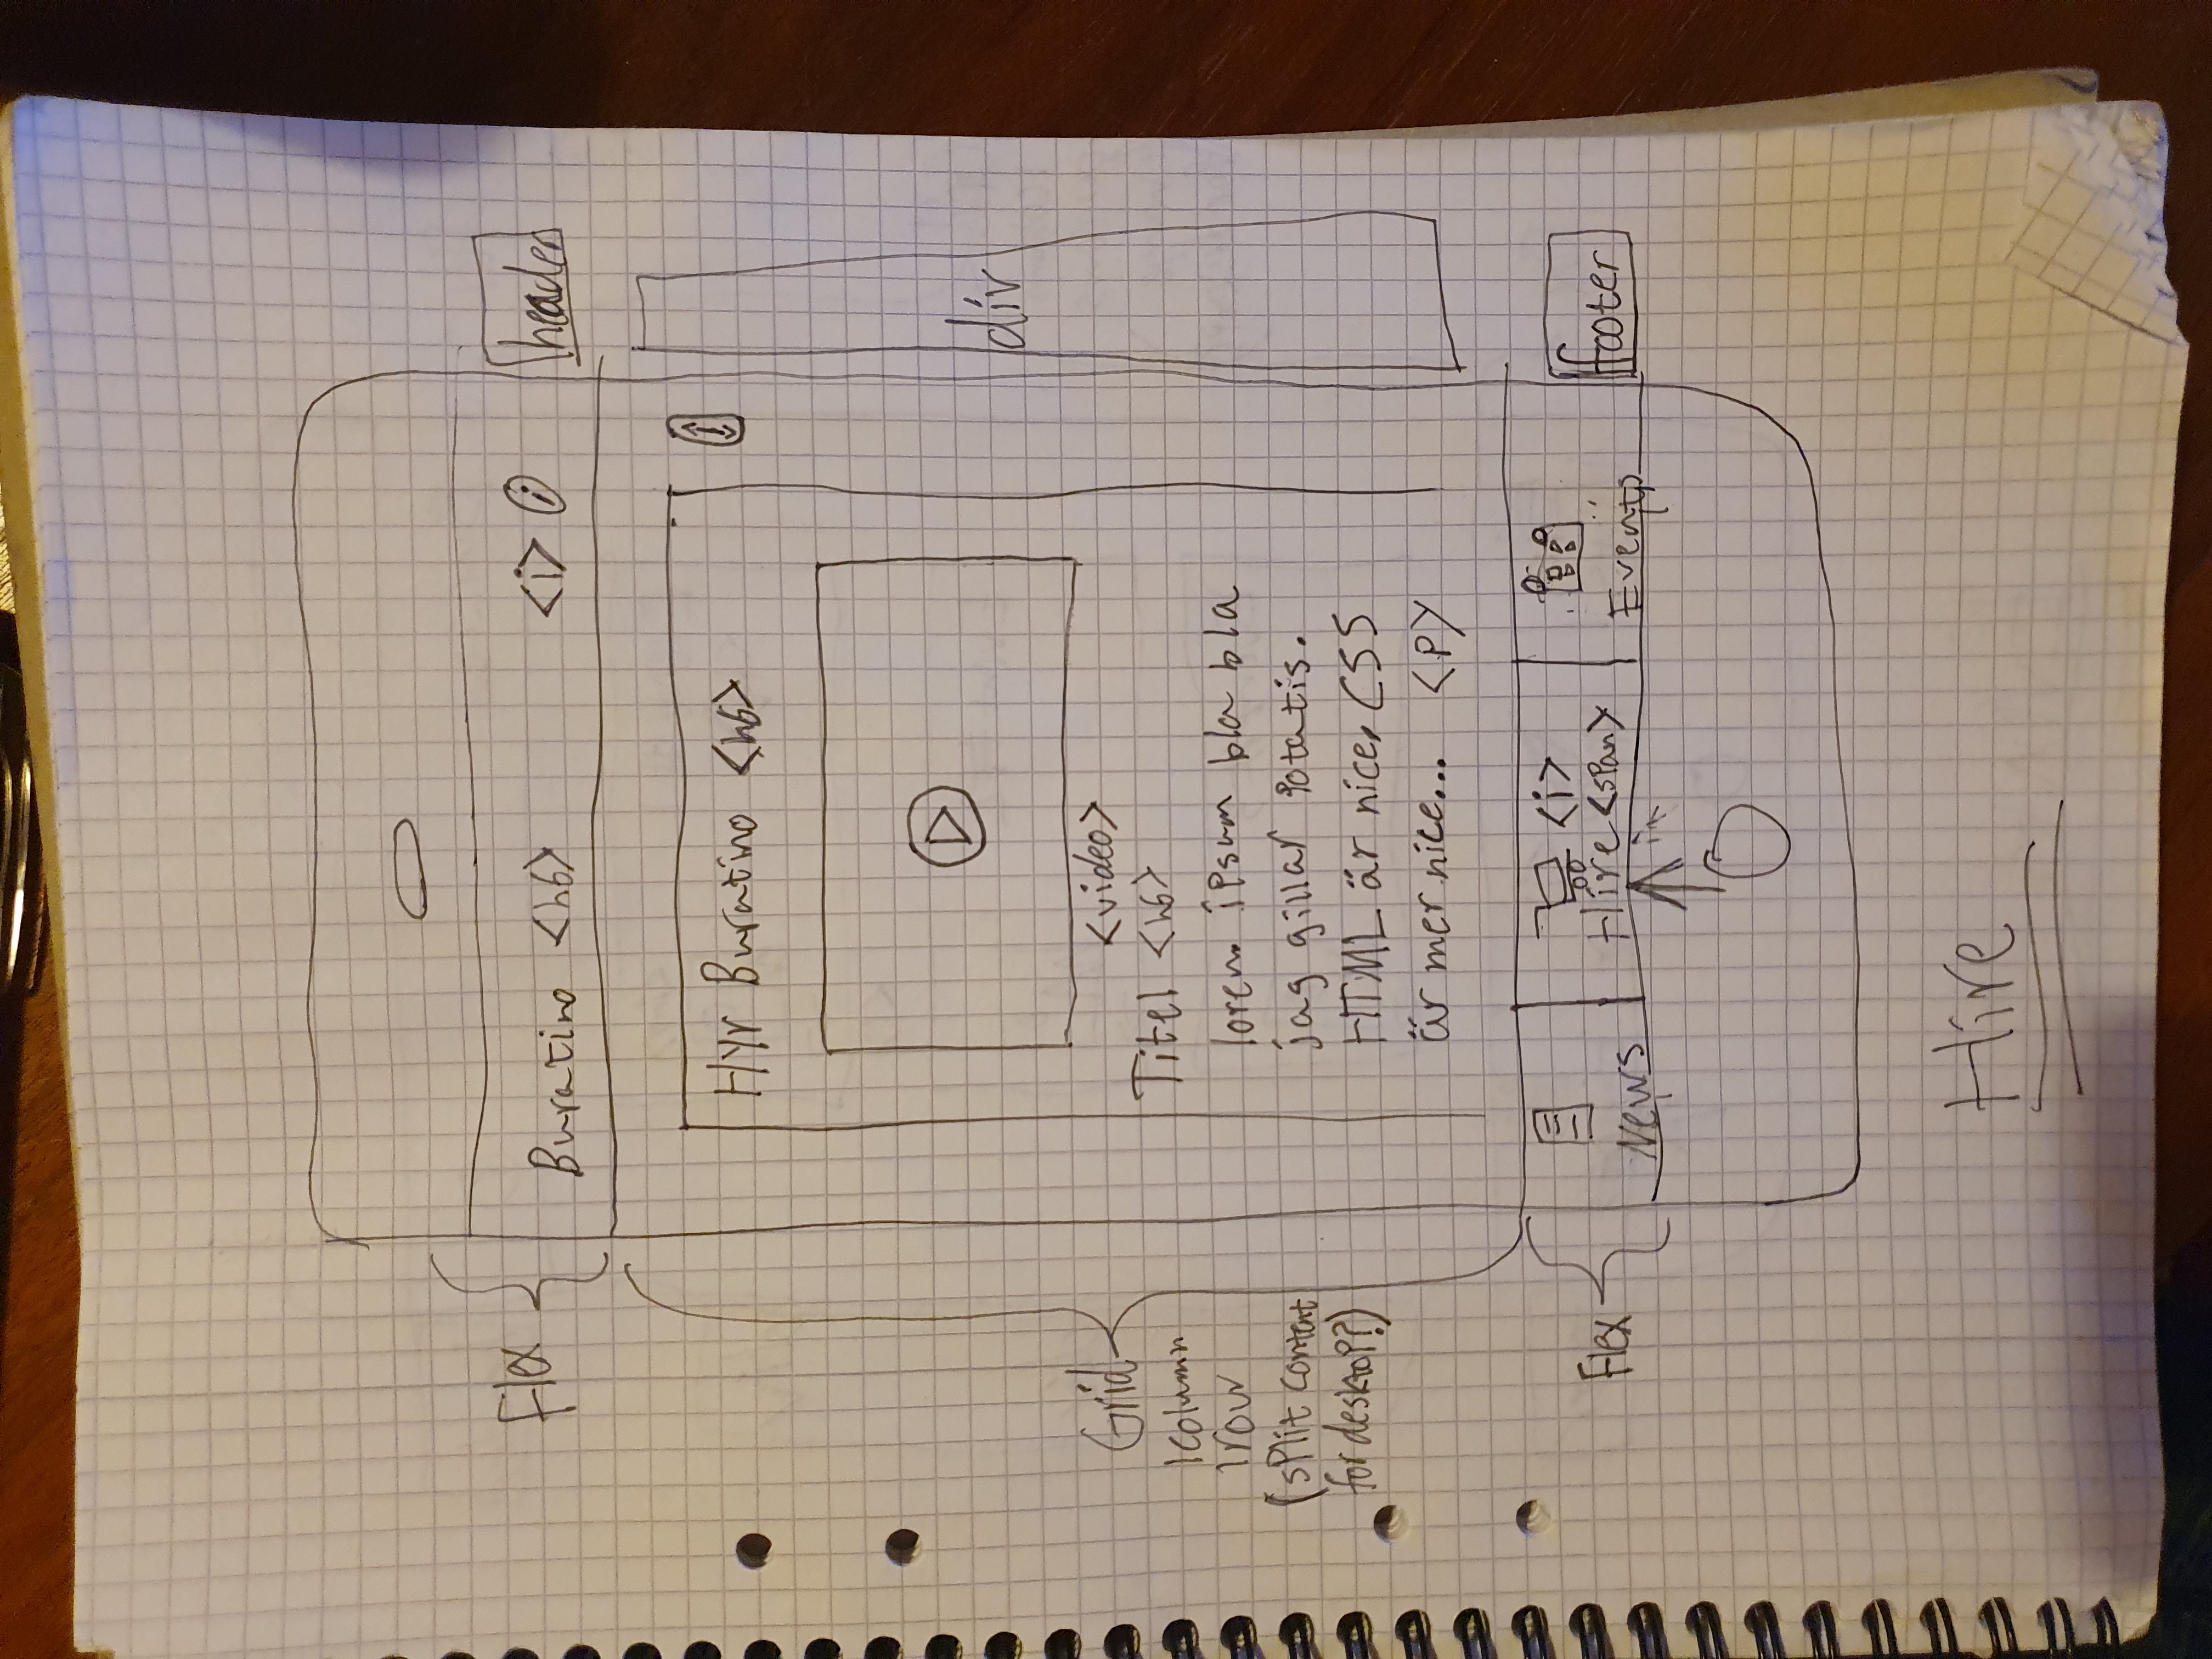 Flex
Buratino <h6>
<i> i
header
Hyr Buratino <h6>
<video>
div
Titel <h6>
lorem ipsum bla bla
jag gillar potatis.
HTML är nice, CSS
är mer nice... <p>
Grid
1column
1row
(split content
for desktop?)
Flex
<i>
News
Hire <span>
Events
footer
Hire